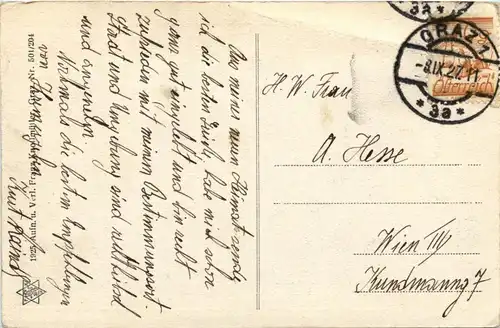 Aus meiner neuen Heimat sende
ich die besten Grüße, habe mich schon
ganz gut eingelebt und bin recht
zufrieden mit meinem Bestimmungsort.
Stadt und Umgebung sind
und
Nochmals die besten Empfehlungen
von
Kurt
GRAZ 1
-8.IX.27.11
* 3a *
3a *
Österreich
H. W. Frau
A. Hesse
Wien III/
Kundmanng 7
Nr. 501/294